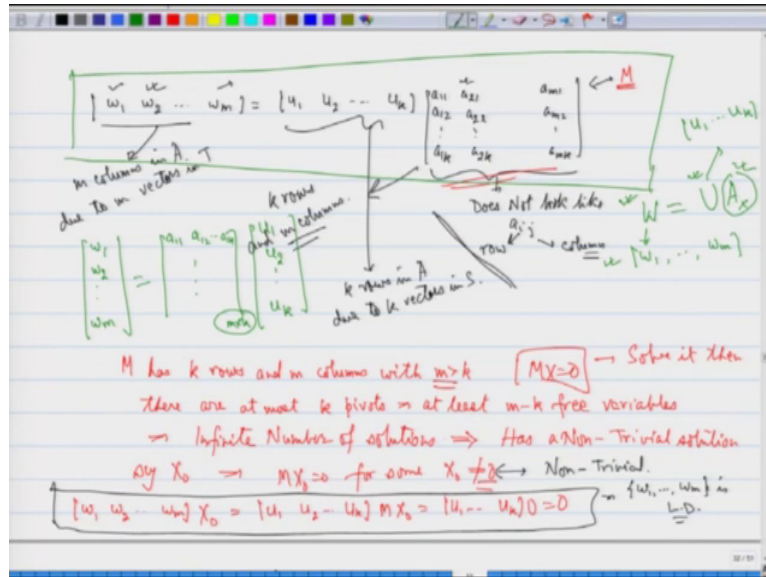 [ w₁ w₂ ... wₘ ] = [ u₁ u₂ ... uₖ ] [ a₁₁ a₂₁ aₘ₁ ← M
a₁₂ a₂₂ aₘ₂
⋮ ⋮ ⋮
a₁ₖ a₂ₖ aₘₖ ]
m columns in A.
due to m vectors in T
k rows
and m columns.
Does Not look like
aᵢⱼ
row column
k rows in A
due to k vectors in S.
[u₁ ... uₖ]
W = U A
[w₁, ..., wₘ]
[ w₁ w₂ ⋮ wₘ ] = [ a₁₁ a₁₂ ... ⋮ ] m×k [ u₁ u₂ ⋮ uₖ ]
M has k rows and m columns with m>k MX=0 → Solve it then
there are at most k pivots ⇒ at least m-k free variables
⇒ Infinite Number of solutions ⇒ Has a Non-Trivial solution
say X₀ ⇒ MX₀=0 for some X₀ ≠0 ↔ Non-Trivial.
[w₁ w₂ ... wₘ] X₀ = [u₁ u₂ ... uₖ] MX₀ = [u₁ ... uₖ] 0 = 0 ⇒ {w₁, ..., wₘ} is
L.D.